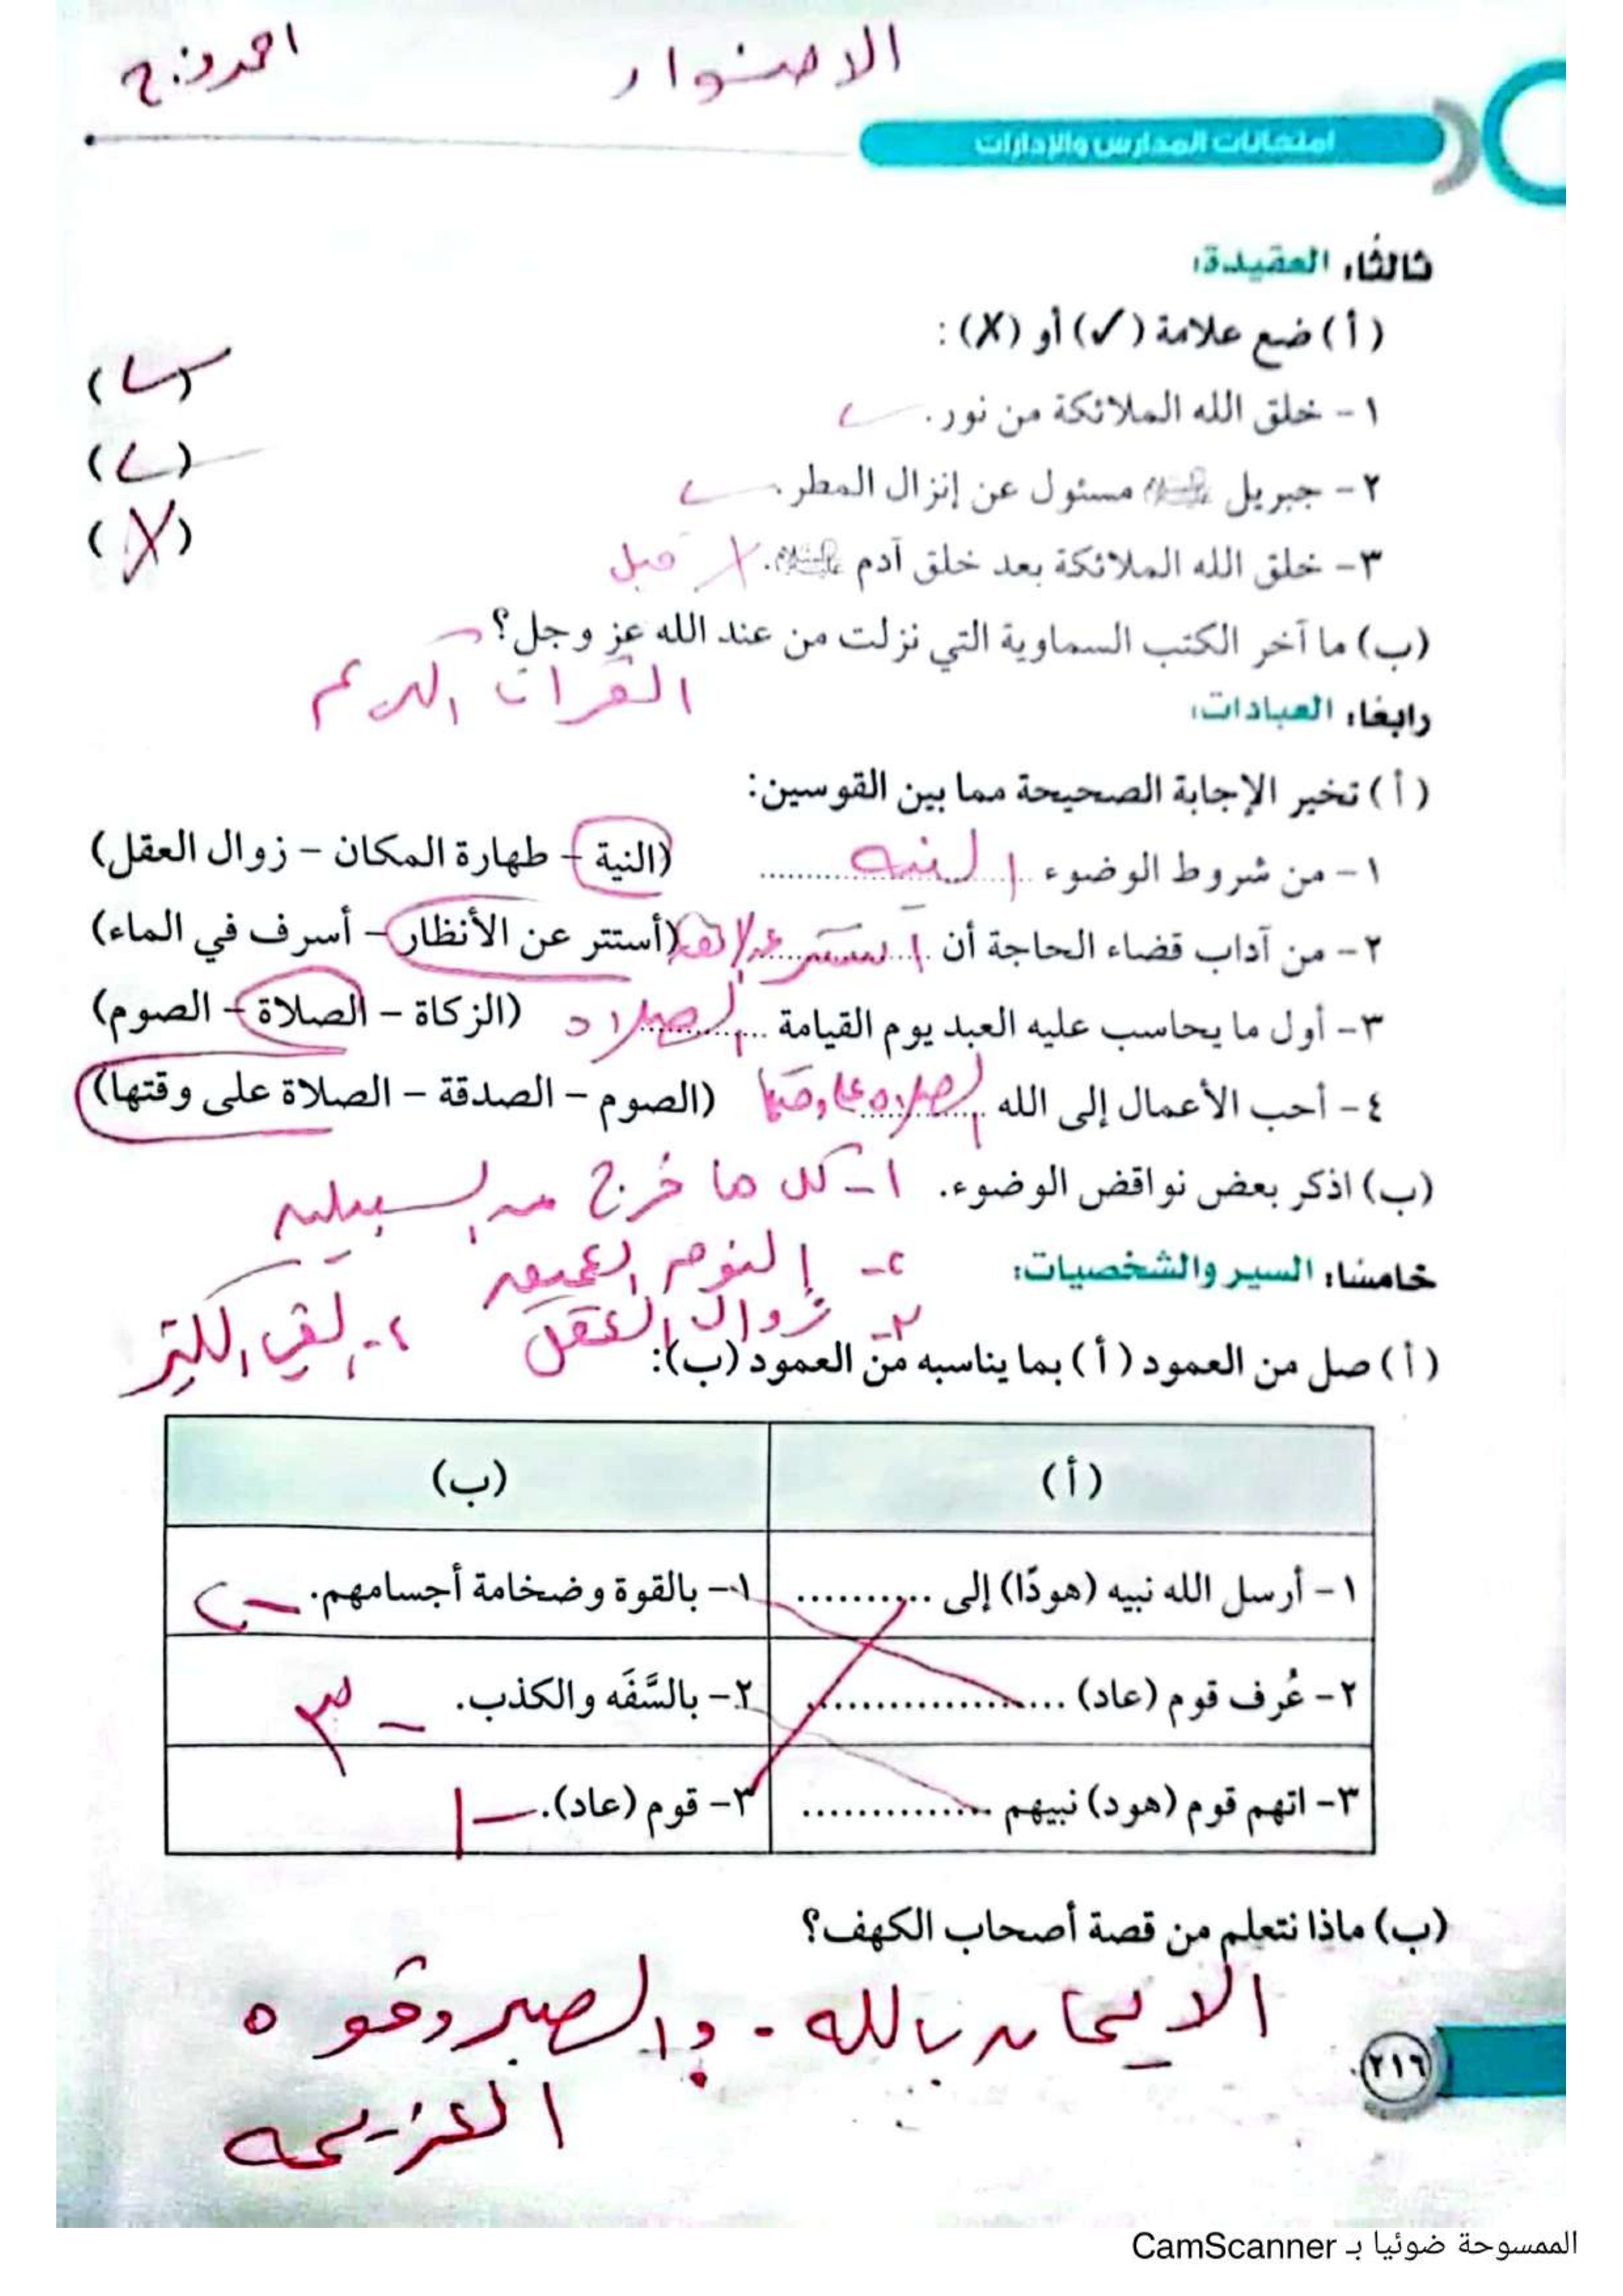 الاضوار احمد فرج
امتحانات المدارس والإدارات
ثالثًا: العقيدة:
(أ) ضع علامة (✓) أو (✗) :
١- خلق الله الملائكة من نور. ✓ (✓)
٢- جبريل عليه السلام مسئول عن إنزال المطر. ✓ (✓)
٣- خلق الله الملائكة بعد خلق آدم عليه السلام. ✗ قبل (✗)
(ب) ما آخر الكتب السماوية التي نزلت من عند الله عز وجل؟
القرآن الكريم
رابعًا: العبادات:
(أ) تخير الإجابة الصحيحة مما بين القوسين:
١- من شروط الوضوء ..النيه.. (النية - طهارة المكان - زوال العقل)
٢- من آداب قضاء الحاجة أن ..استتر عن الانظار.. (أستتر عن الأنظار - أسرف في الماء)
٣- أول ما يحاسب عليه العبد يوم القيامة ..الصلاه.. (الزكاة - الصلاة - الصوم)
٤- أحب الأعمال إلى الله ..الصلاه على وقتها.. (الصوم - الصدقة - الصلاة على وقتها)
(ب) اذكر بعض نواقض الوضوء. ١- كل ما خرج من السبيلين
خامسًا: السير والشخصيات: ٢- النوم العميق
٣- زوال العقل ٤- القئ الكثير
(أ) صل من العمود (أ) بما يناسبه من العمود (ب):
(أ) (ب)
١- أرسل الله نبيه (هودًا) إلى .......... ١- بالقوة وضخامة أجسامهم. - ٢
٢- عُرف قوم (عاد) .................... ٢- بالسَّفَه والكذب. - ٣
٣- اتهم قوم (هود) نبيهم ............... ٣- قوم (عاد). - ١
(ب) ماذا نتعلم من قصة أصحاب الكهف؟
الايمان بالله - والصبر وقوه
العزيمه
٢١٦
الممسوحة ضوئيا بـ CamScanner